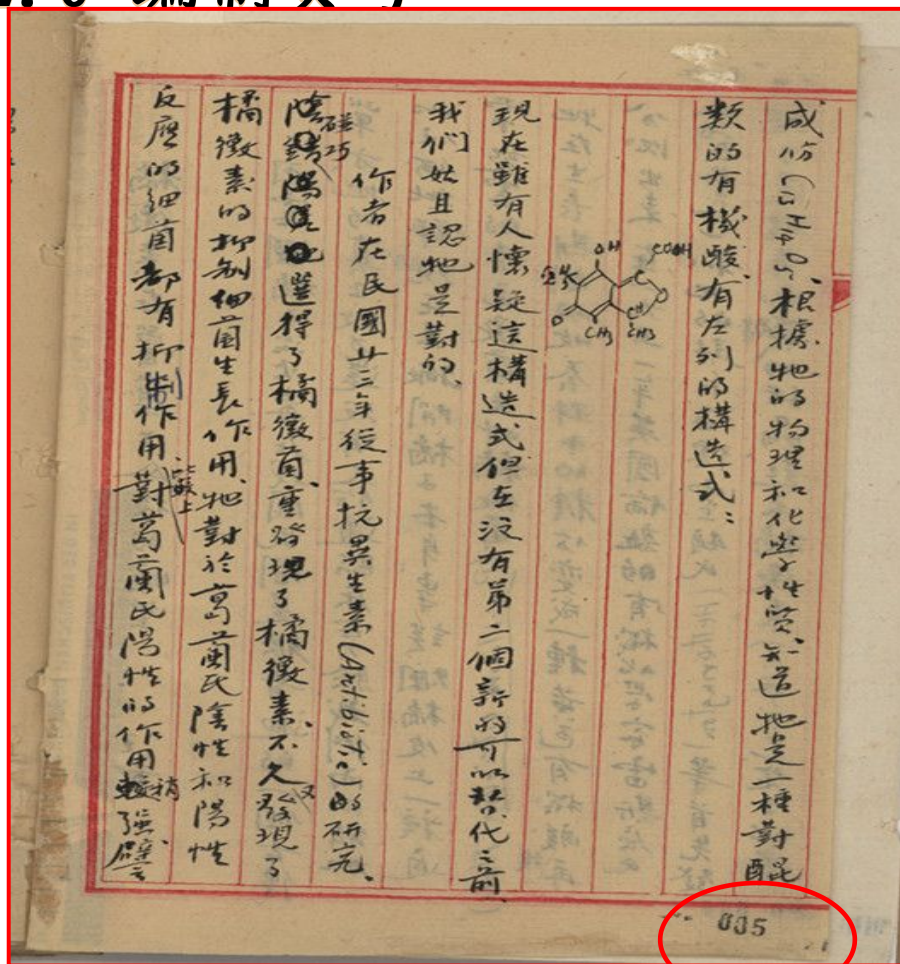 成份(C13H14O5)根據牠的物理和化學性質知道牠是一種對醌
類的有機酸、有左列的構造式：
OH
COOH
CH3
CH3
現在雖有人懷疑這構造式但在沒有第二個新的可以替代之前、
我們姑且認牠是對的、
作者在民國廿三年從事抗異生素(Antibiotic)的研究、
碰巧
選得了橘黴菌、重發現了橘黴素、不久又發現了
橘黴素的抑制細菌生長作用、牠對於葛蘭氏陰性和陽性
反應的細菌都有抑制作用、對葛蘭氏陽性的作用稍強、譬
以上
005